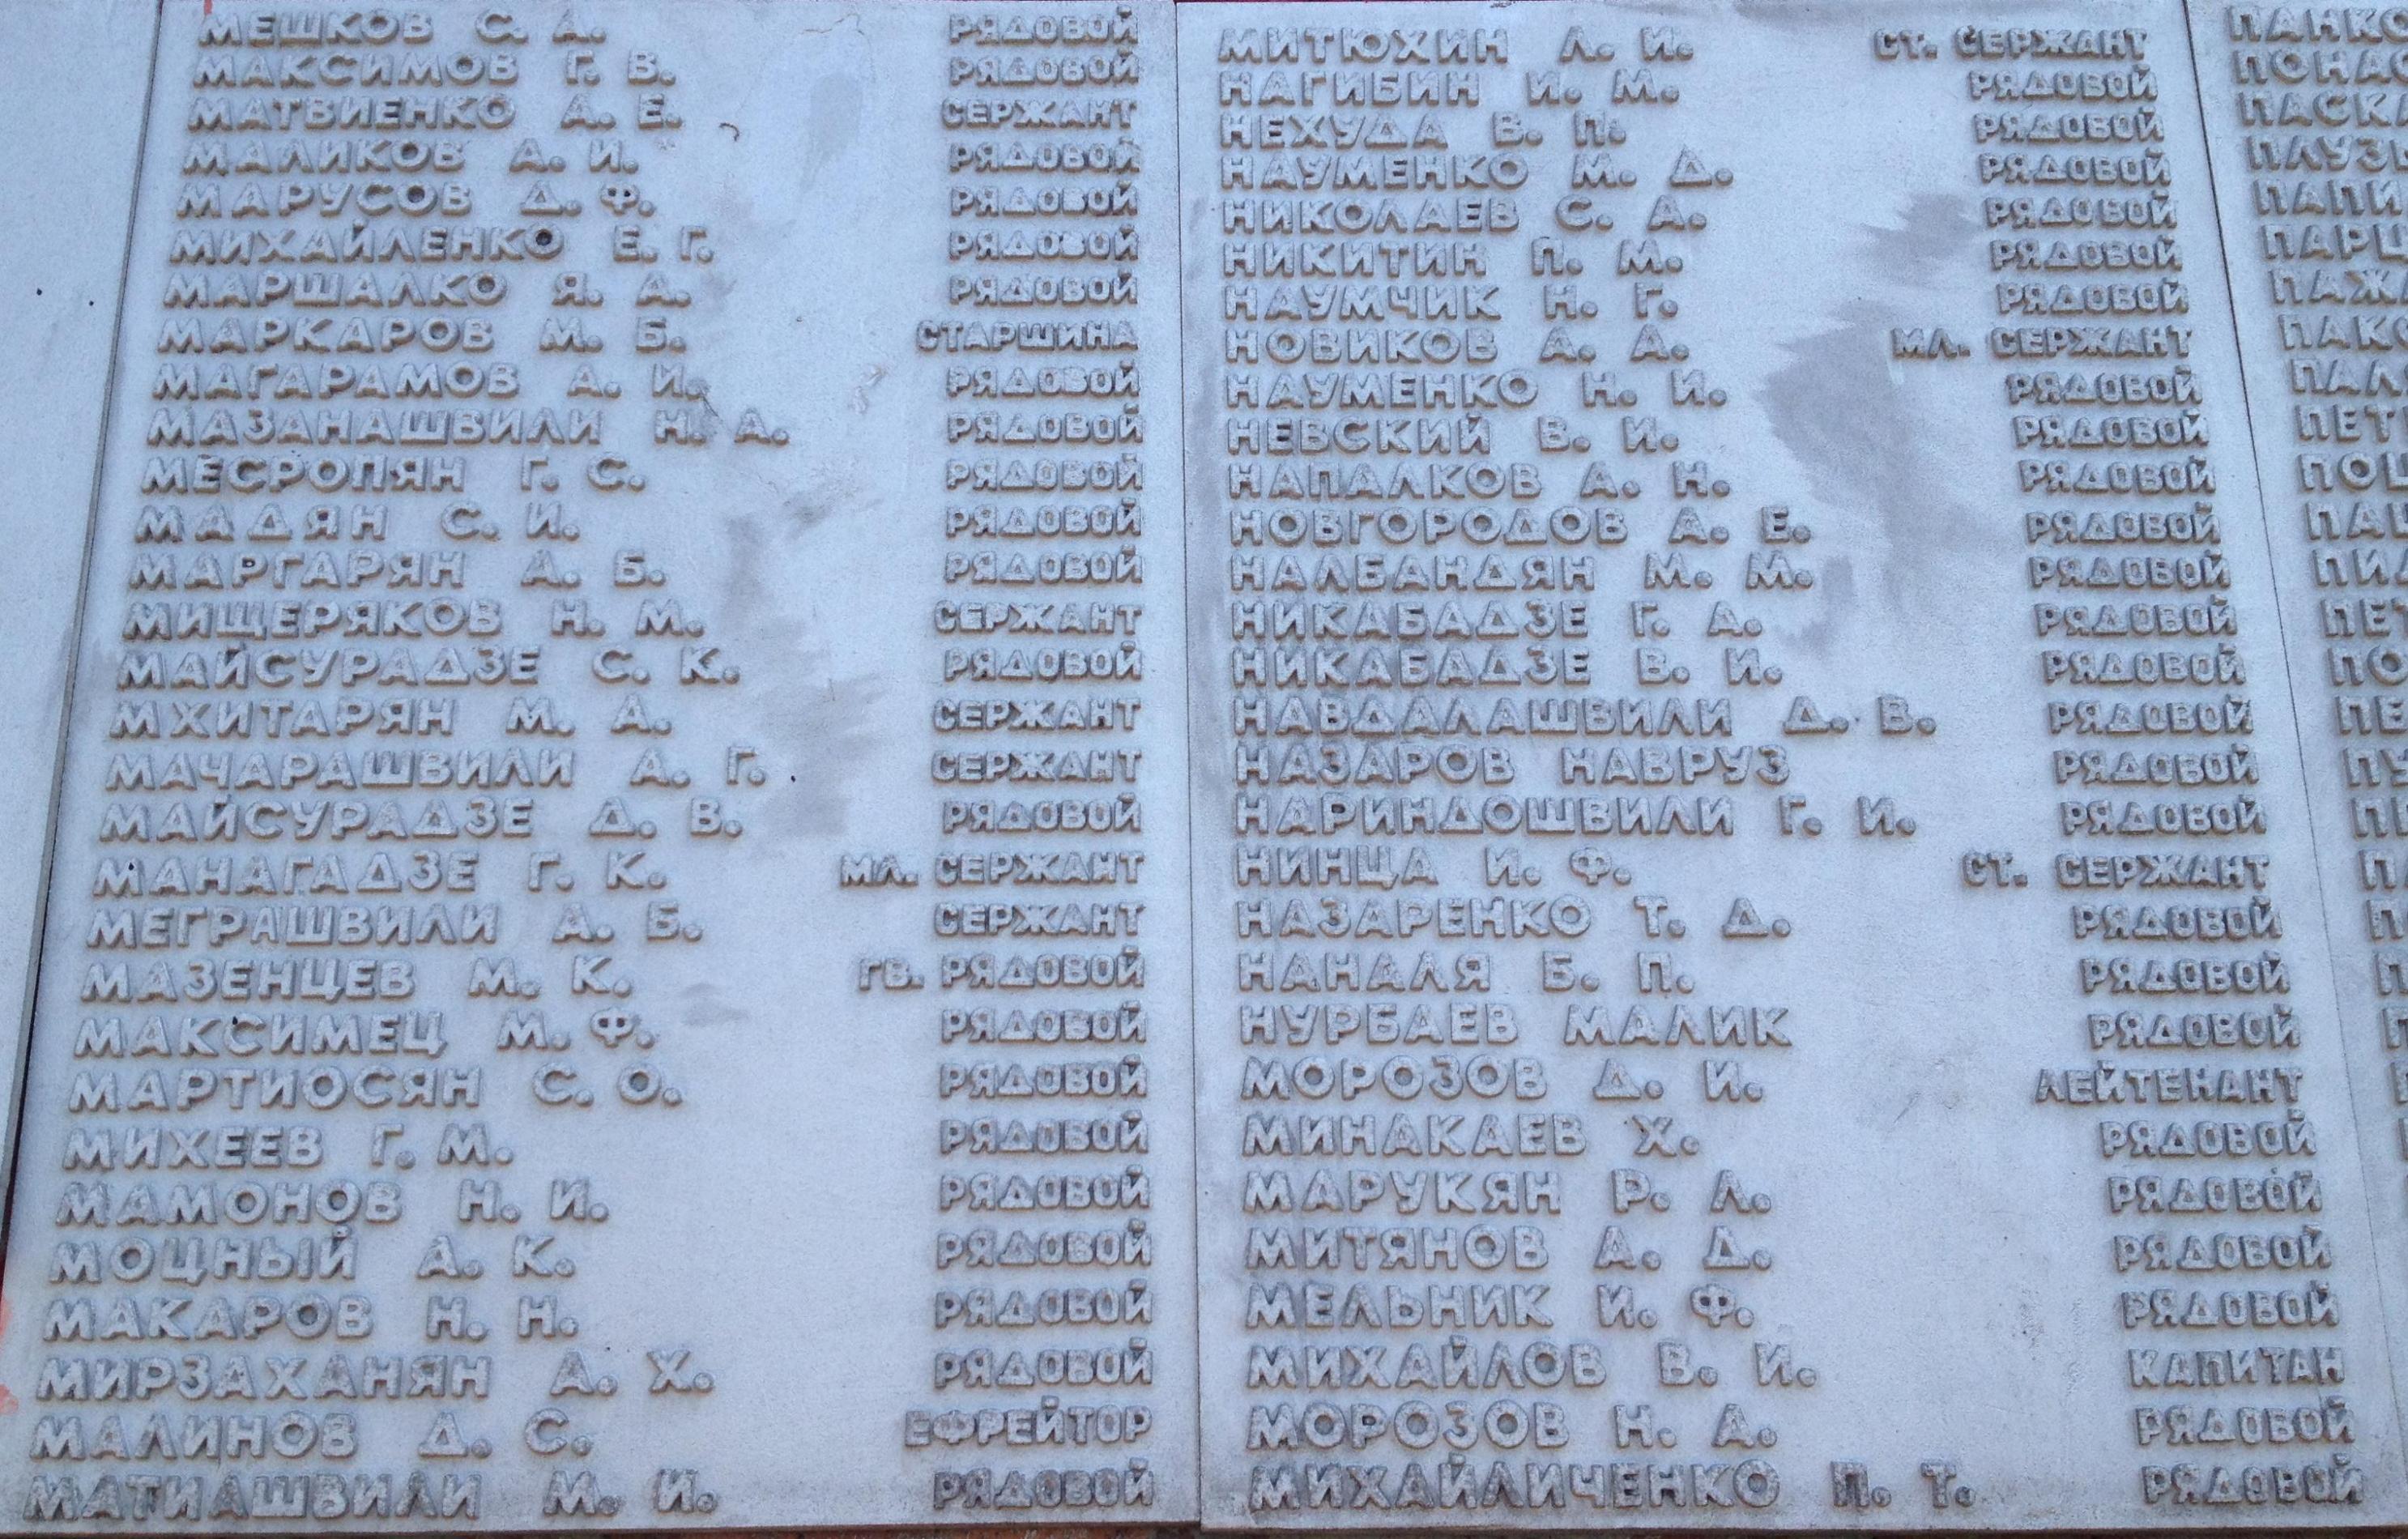 МЕШКОВ С. А. РЯДОВОЙ
МАКСИМОВ Г. В. РЯДОВОЙ
МАТВИЕНКО А. Е. СЕРЖАНТ
МАЛИКОВ А. И. РЯДОВОЙ
МАРУСОВ Д. Ф. РЯДОВОЙ
МИХАЙЛЕНКО Е. Г. РЯДОВОЙ
МАРШАЛКО Я. А. РЯДОВОЙ
МАРКАРОВ М. Б. СТАРШИНА
МАГАРАМОВ А. И. РЯДОВОЙ
МАЗАНАШВИЛИ Н. А. РЯДОВОЙ
МЕСРОПЯН Г. С. РЯДОВОЙ
МАДЯН С. И. РЯДОВОЙ
МАРГАРЯН А. Б. РЯДОВОЙ
МИЩЕРЯКОВ Н. М. СЕРЖАНТ
МАЙСУРАДЗЕ С. К. РЯДОВОЙ
МХИТАРЯН М. А. СЕРЖАНТ
МАЧАРАШВИЛИ А. Г. СЕРЖАНТ
МАЙСУРАДЗЕ Д. В. РЯДОВОЙ
МАНАГАДЗЕ Г. К. МЛ. СЕРЖАНТ
МЕГРАШВИЛИ А. Б. СЕРЖАНТ
МАЗЕНЦЕВ М. К. ГВ. РЯДОВОЙ
МАКСИМЕЦ М. Ф. РЯДОВОЙ
МАРТИОСЯН С. О. РЯДОВОЙ
МИХЕЕВ Г. М. РЯДОВОЙ
МАМОНОВ Н. И. РЯДОВОЙ
МОЦНЫЙ А. К. РЯДОВОЙ
МАКАРОВ Н. Н. РЯДОВОЙ
МИРЗАХАНЯН А. Х. РЯДОВОЙ
МАЛИНОВ Д. С. ЕФРЕЙТОР
МАТИАШВИЛИ М. И. РЯДОВОЙ
МИТЮХИН Л. И. СТ. СЕРЖАНТ
НАГИБИН И. М. РЯДОВОЙ
НЕХУДА В. П. РЯДОВОЙ
НАУМЕНКО М. Д. РЯДОВОЙ
НИКОЛАЕВ С. А. РЯДОВОЙ
НИКИТИН П. М. РЯДОВОЙ
НАУМЧИК Н. Г. РЯДОВОЙ
НОВИКОВ А. А. МЛ. СЕРЖАНТ
НАУМЕНКО Н. И. РЯДОВОЙ
НЕВСКИЙ В. И. РЯДОВОЙ
НАПАЛКОВ А. Н. РЯДОВОЙ
НОВГОРОДОВ А. Е. РЯДОВОЙ
НАЛБАНДЯН М. М. РЯДОВОЙ
НИКАБАДЗЕ Г. А. РЯДОВОЙ
НИКАБАДЗЕ В. И. РЯДОВОЙ
НАВДАЛАШВИЛИ Д. В. РЯДОВОЙ
НАЗАРОВ НАВРУЗ РЯДОВОЙ
НАРИНДОШВИЛИ Г. И. РЯДОВОЙ
НИНЦА И. Ф. СТ. СЕРЖАНТ
НАЗАРЕНКО Т. Д. РЯДОВОЙ
НАНАЛЯ Б. П. РЯДОВОЙ
НУРБАЕВ МАЛИК РЯДОВОЙ
МОРОЗОВ Д. И. ЛЕЙТЕНАНТ
МИНАКАЕВ Х. РЯДОВОЙ
МАРУКЯН Р. Л. РЯДОВОЙ
МИТЯНОВ А. Д. РЯДОВОЙ
МЕЛЬНИК И. Ф. РЯДОВОЙ
МИХАЙЛОВ В. И. КАПИТАН
МОРОЗОВ Н. А. РЯДОВОЙ
МИХАЙЛИЧЕНКО П. Т. РЯДОВОЙ